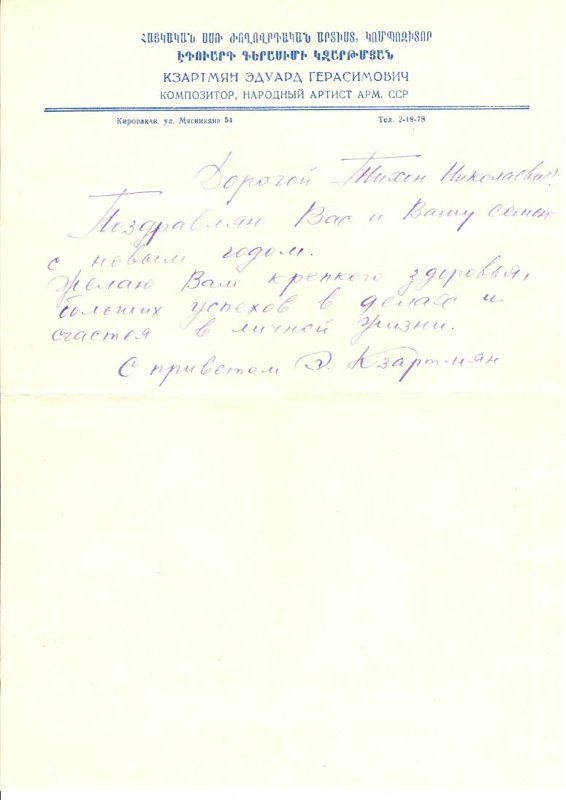 ՀԱՅԿԱԿԱՆ ՍՍՌ ԺՈՂՈՎՐԴԱԿԱՆ ԱՐՏԻՍՏ, ԿՈՄՊՈԶԻՏՈՐ
ԷԴՈՒԱՐԴ ԳԵՐԱՍԻՄԻ ԿԶԱՐԹՄՅԱՆ
КЗАРТМЯН ЭДУАРД ГЕРАСИМОВИЧ
КОМПОЗИТОР, НАРОДНЫЙ АРТИСТ АРМ. ССР
Кировакан, ул. Мясникяна 54 Тел. 2-18-78
Дорогой Тихон Николаевич!
Поздравляю Вас и Вашу семью
с новым годом.
Желаю Вам крепкого здоровья,
больших успехов в делах и
счастья в личной жизни.
С приветом Э. Кзартмян